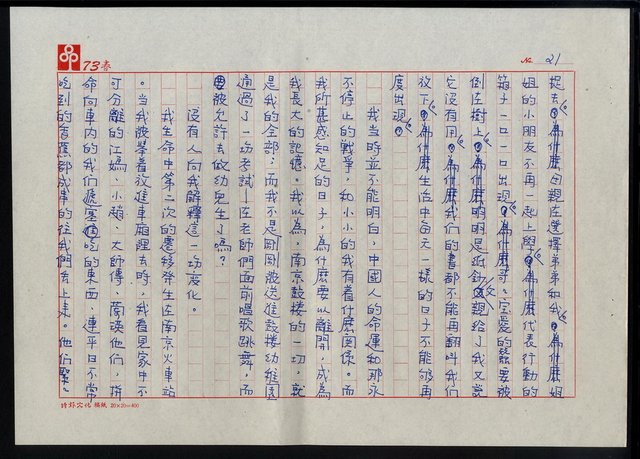 73春
No. 21
捉去。為什麼母親在選擇弟弟和我。為什麼姐
姐的小朋友不再一起上學。為什麼代表行動的
箱子一口一口出現。為什麼哥哥寶愛的蠶要被
倒在樹上。為什麼明明是近
親給了我又說
它沒有用。為什麼我們的書都不能再翻叫我們
放下。為什麼生活中每天一樣的日子不能夠再
度出現。
我當時並不能明白，中國人的命運和那永
不停止的戰爭，和小小的我有着什麼關係。而
我所甚感知足的日子，為什麼要以離開，成為
我長大的記憶。我以為，南京鼓樓的一切，就
是我的全部；而我不是剛剛被送進鼓樓幼稚園
通過了一次考試——在老師們面前唱歌跳舞，而
被允許去做幼兒生了嗎？
沒有人向我解釋這一切變化。
我生命中第二次的遷移發生在南京火車站
。當我被舉着放進車廂裡去時，我看見家中不
可分離的江媽、小趙、大師傅、蘭瑛他們，拼
命向車內的我們遞塞吃的東西，連平日不常
吃到的香蕉都成串的往我們丟上來。他們緊
特邦文化 稿紙 20×20=400